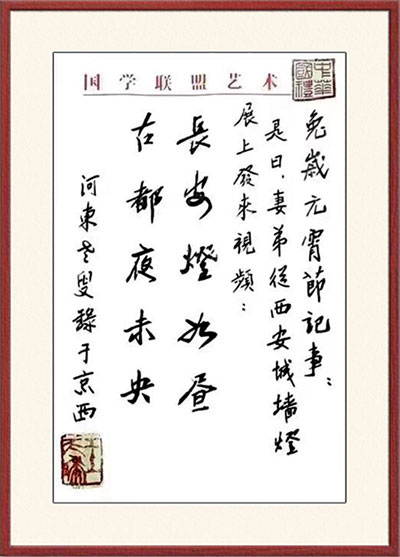 国学联盟艺术
中華國禮
兔歲元宵節記事：
是日，妻弟從西安城墙燈
展上發來視頻：
長安燈如昼
在都夜未央
河東老叟錄于京西